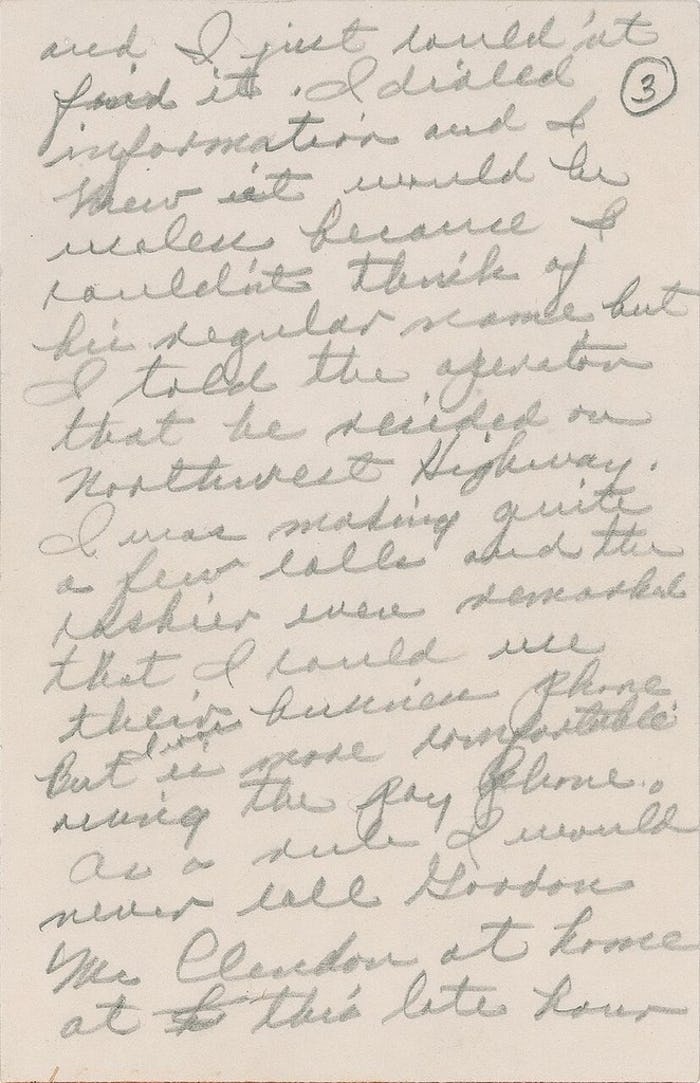 and I just could'nt
find it. I dialed
③
information and I
knew it would be
useless because I
couldn't think of
his regular name, but
I told the operator
that he resided on
Northwest Highway.
I was making quite
a few calls and the
cashier even remarked
that I could use
their business phone
But I was more comfortable
using the pay phone.
As a rule I would
never call Gordon
Mc Clendon at home
at this late hour